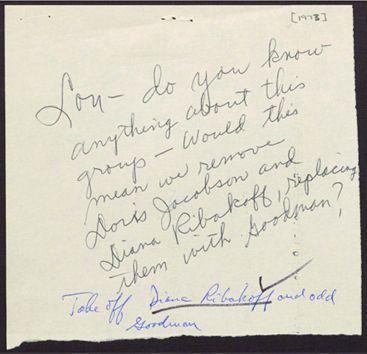 [1973]
Lou - do you know
anything about this
group - Would this
mean we remove
Doris Jacobson and
Diana Ribakoff, replacing
them with Goodman?
Take off Diana Ribakoff and add
Goodman